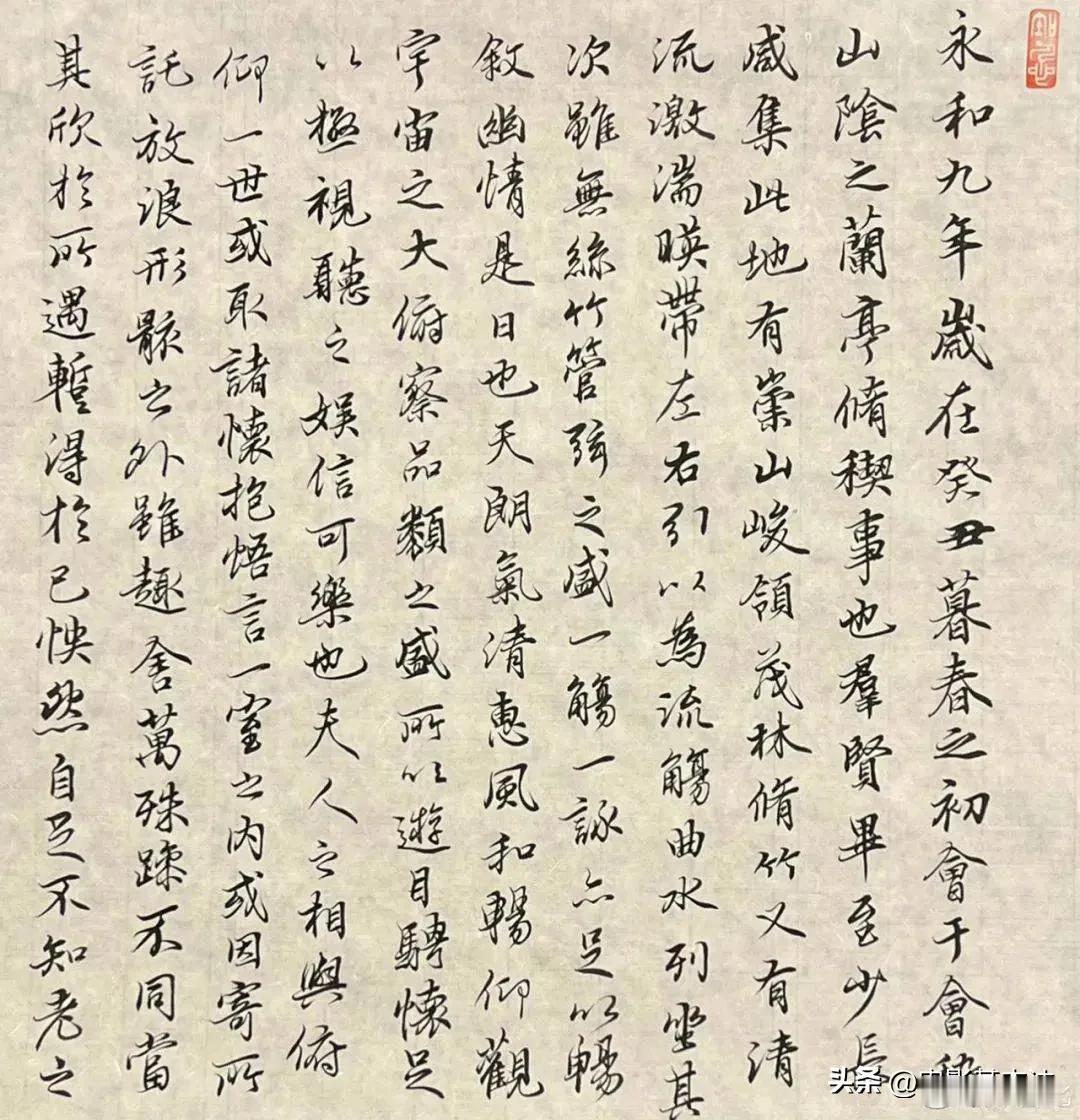 永和九年歲在癸丑暮春之初會于會稽
山陰之蘭亭脩稧事也羣賢畢至少長
咸集此地有崇山峻領茂林脩竹又有清
流激湍暎帶左右引以為流觴曲水列坐其
次雖無絲竹管弦之盛一觴一詠亦足以暢
敘幽情是日也天朗氣清惠風和暢仰觀
宇宙之大俯察品類之盛所以遊目騁懷足
以極視聽之娛信可樂也夫人之相與俯
仰一世或取諸懷抱悟言一室之內或因寄所
託放浪形骸之外雖趣舍萬殊躁不同當
其欣於所遇蹔得於己怏然自足不知老之
头条 @